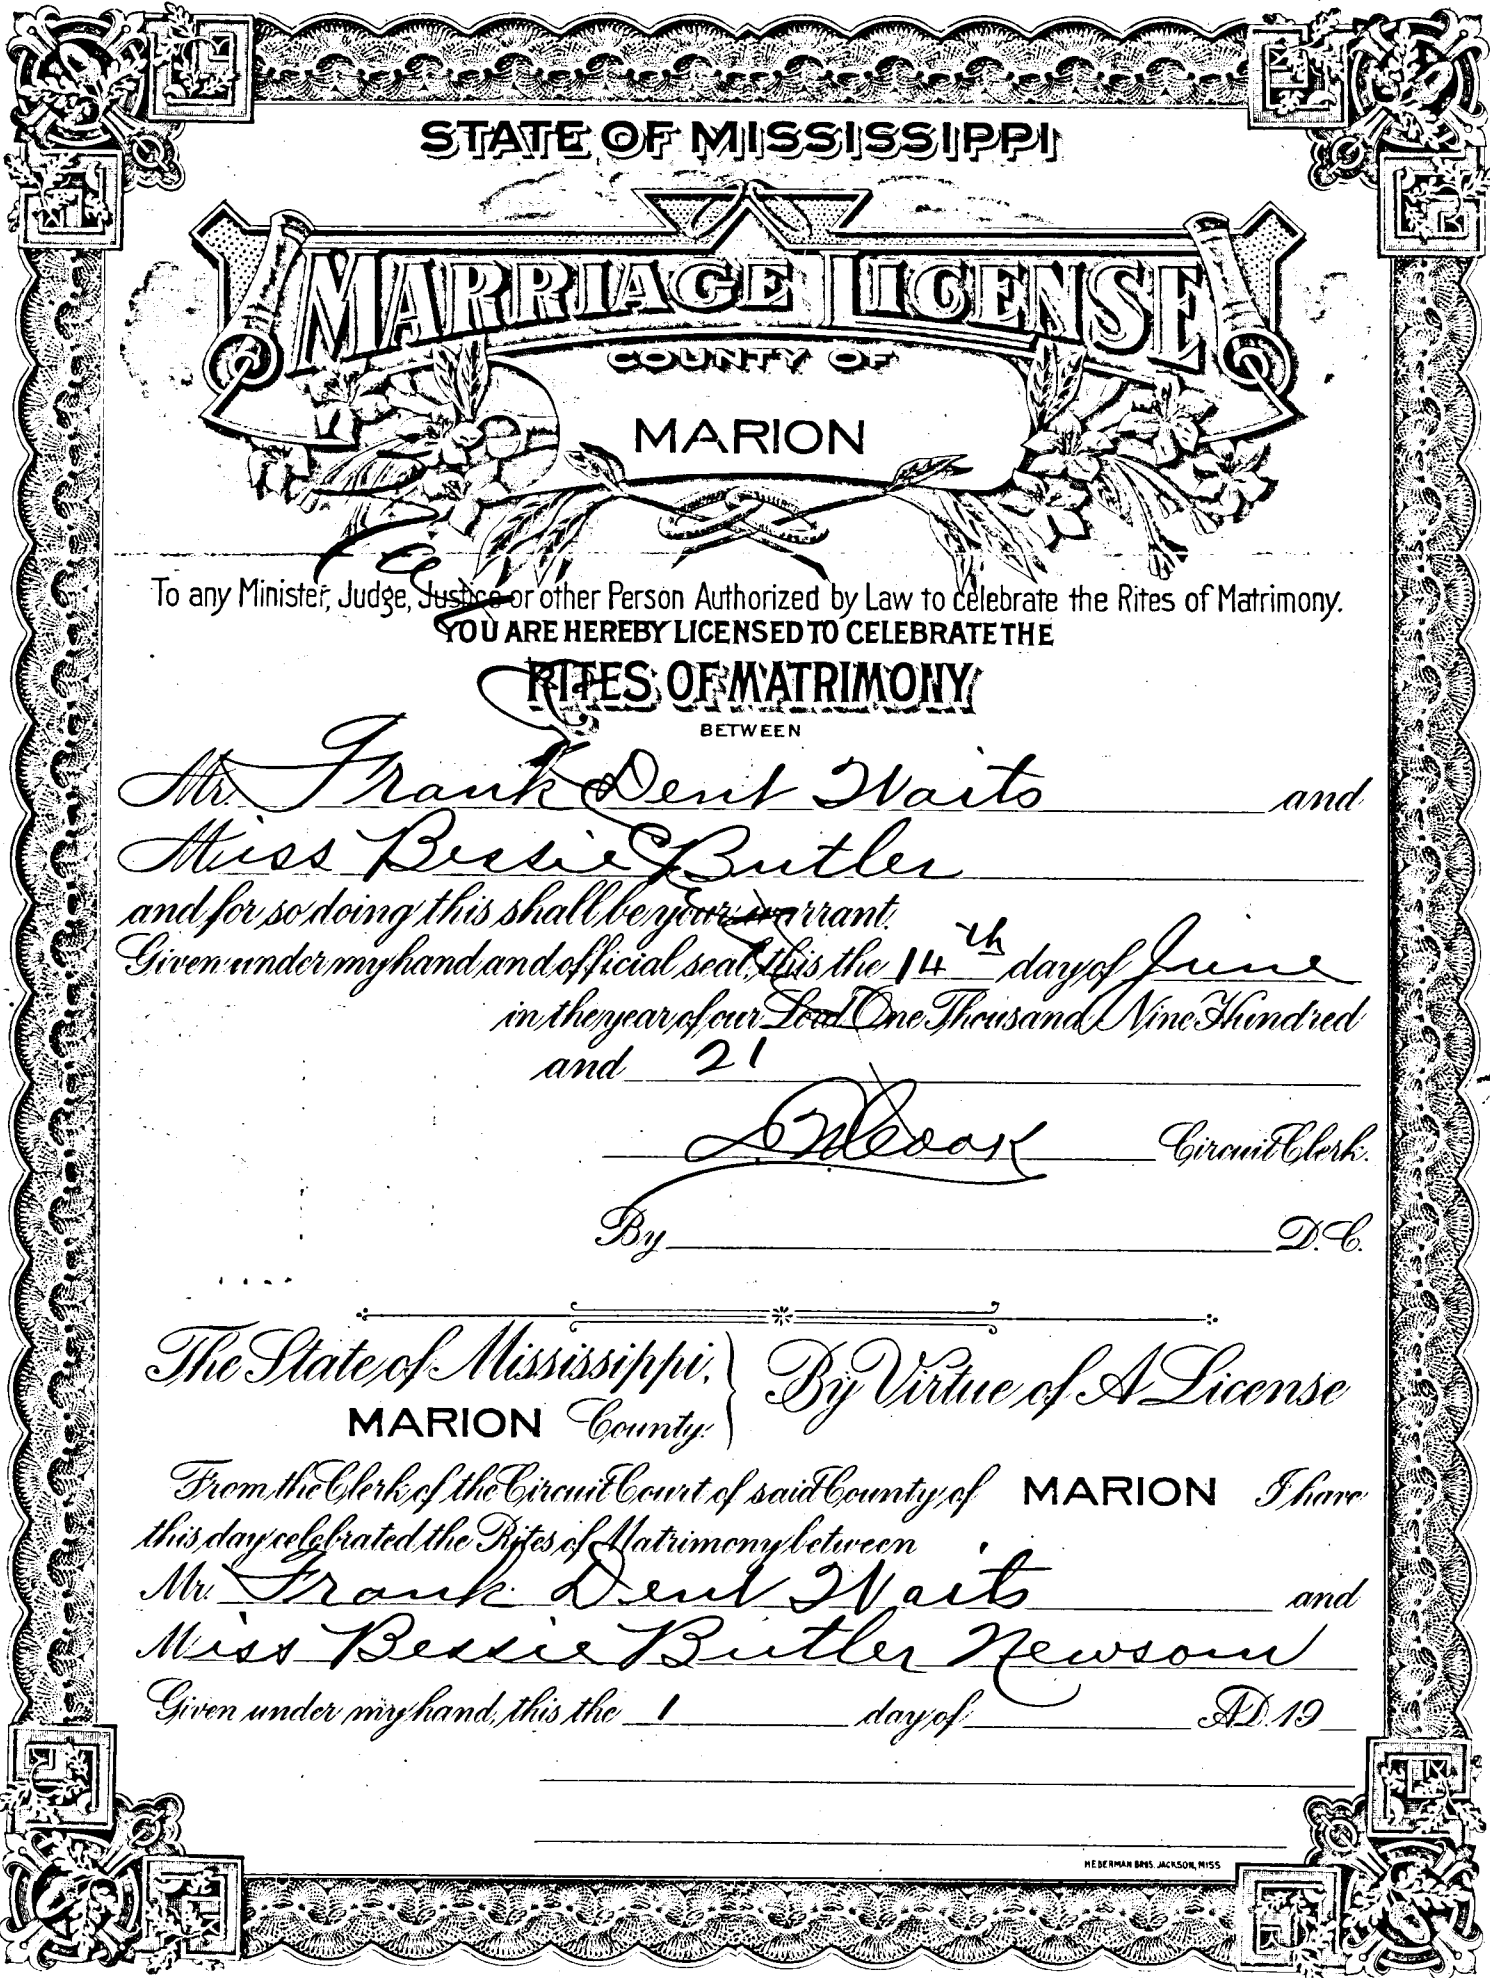 STATE OF MISSISSIPPI
MARRIAGE LICENSE
COUNTY OF
MARION
To any Minister, Judge, Justice or other Person Authorized by Law to celebrate the Rites of Matrimony.
YOU ARE HEREBY LICENSED TO CELEBRATE THE
RITES OF MATRIMONY
BETWEEN
Mr. Frank Dent Waits and
Miss Bessie Butler
and for so doing this shall be your warrant.
Given under my hand and official seal, this the 14th day of June
in the year of our Lord One Thousand Nine Hundred
and 21
Cook Circuit Clerk.
By D.C.
The State of Mississippi, By Virtue of A License
MARION County.
From the Clerk of the Circuit Court of said County of MARION I have
this day celebrated the Rites of Matrimony between
Mr. Frank Dent Waits and
Miss Bessie Butler Newsom
Given under my hand, this the 1 day of A.D. 19
HEDERMAN BROS. JACKSON, MISS